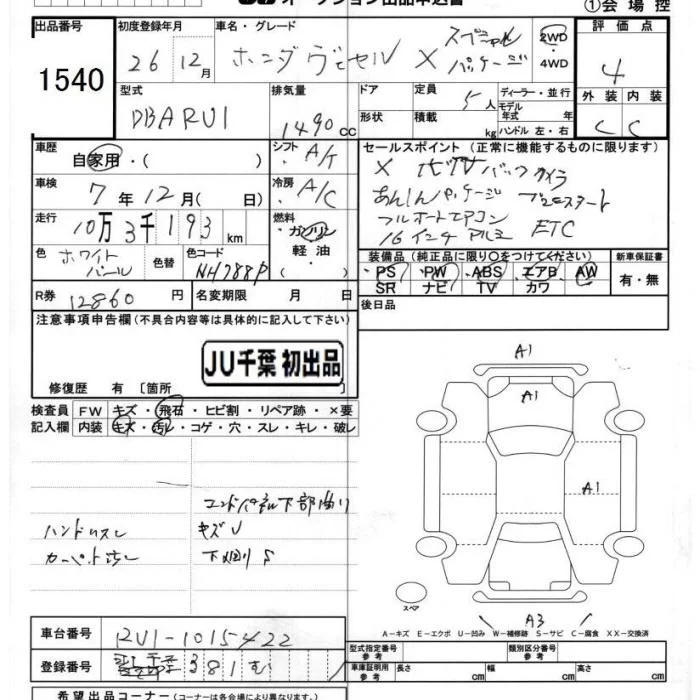 オークション出品申込書
①会場控
出品番号 初度登録年月 車名・グレード 評価点
1540 26 12月 ホンダ ヴェゼル X スペシャルパッケージ 2WD 4WD 4
型式 排気量 ドア 定員 ディーラー・並行 外装 内装
DBA RU1 1490 cc 5人 モデル年式 年式 C C
形状 積載 kg ハンドル 左・右
車歴 シフト セールスポイント (正常に機能するものに限ります)
自家用・( ) A/T X バックカメラ
車検 7年12月( 日) 冷房 A/C あんしんパッケージ プッシュスタート
走行 10万3千193km 燃料 フルオートエアコン ETC
ガソリン 16インチアルミ
軽油
色 ホワイトパール 色替 色コード NH788P
装備品 (純正品に限り○をつけてください) 新車保証書
PS PW ABS エアB AW 有・無
SR ナビ TV カワ
R券 12860円 名変期限 月 日 後日品
注意事項申告欄 (不具合内容等は具体的に記入して下さい)
JU千葉 初出品
修復歴 有 [箇所 ]
検査員 FW キズ・飛石・ヒビ割・リペア跡・×要
記入欄 内装 キズ・汚レ・コゲ・穴・スレ・キレ・破レ
A1
A1
A1
エンドパネル下部曲り
ハンドルスレ キズU
下廻りS
スペア
A3
A―キズ E―エクボ U―凹み W―補修跡 S―サビ C―腐食 XX―交換済
車台番号 RU1-1015422
型式指定番号 参考 類別区分番号 参考
登録番号 381 む
車庫証明用 参考 長さ cm 幅 cm 高さ cm
希望出品コーナー (コーナーは各会場により異なります。)